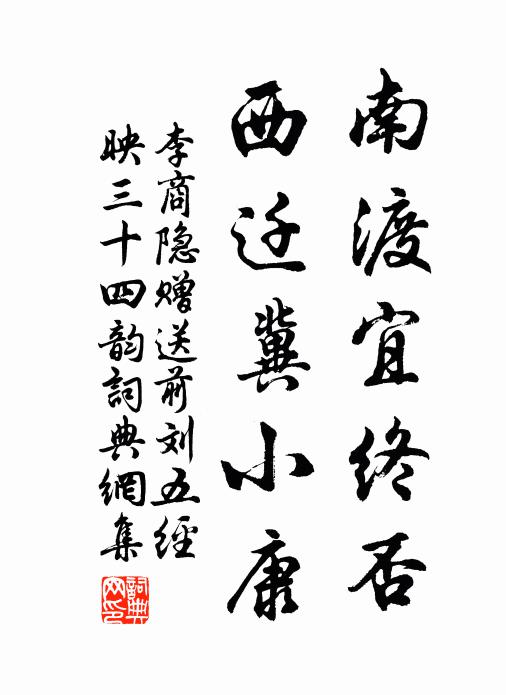 南渡宜终否
西迁冀小康
李商隐赠送前刘五經
映三十四韵詞典網集
詞典网印